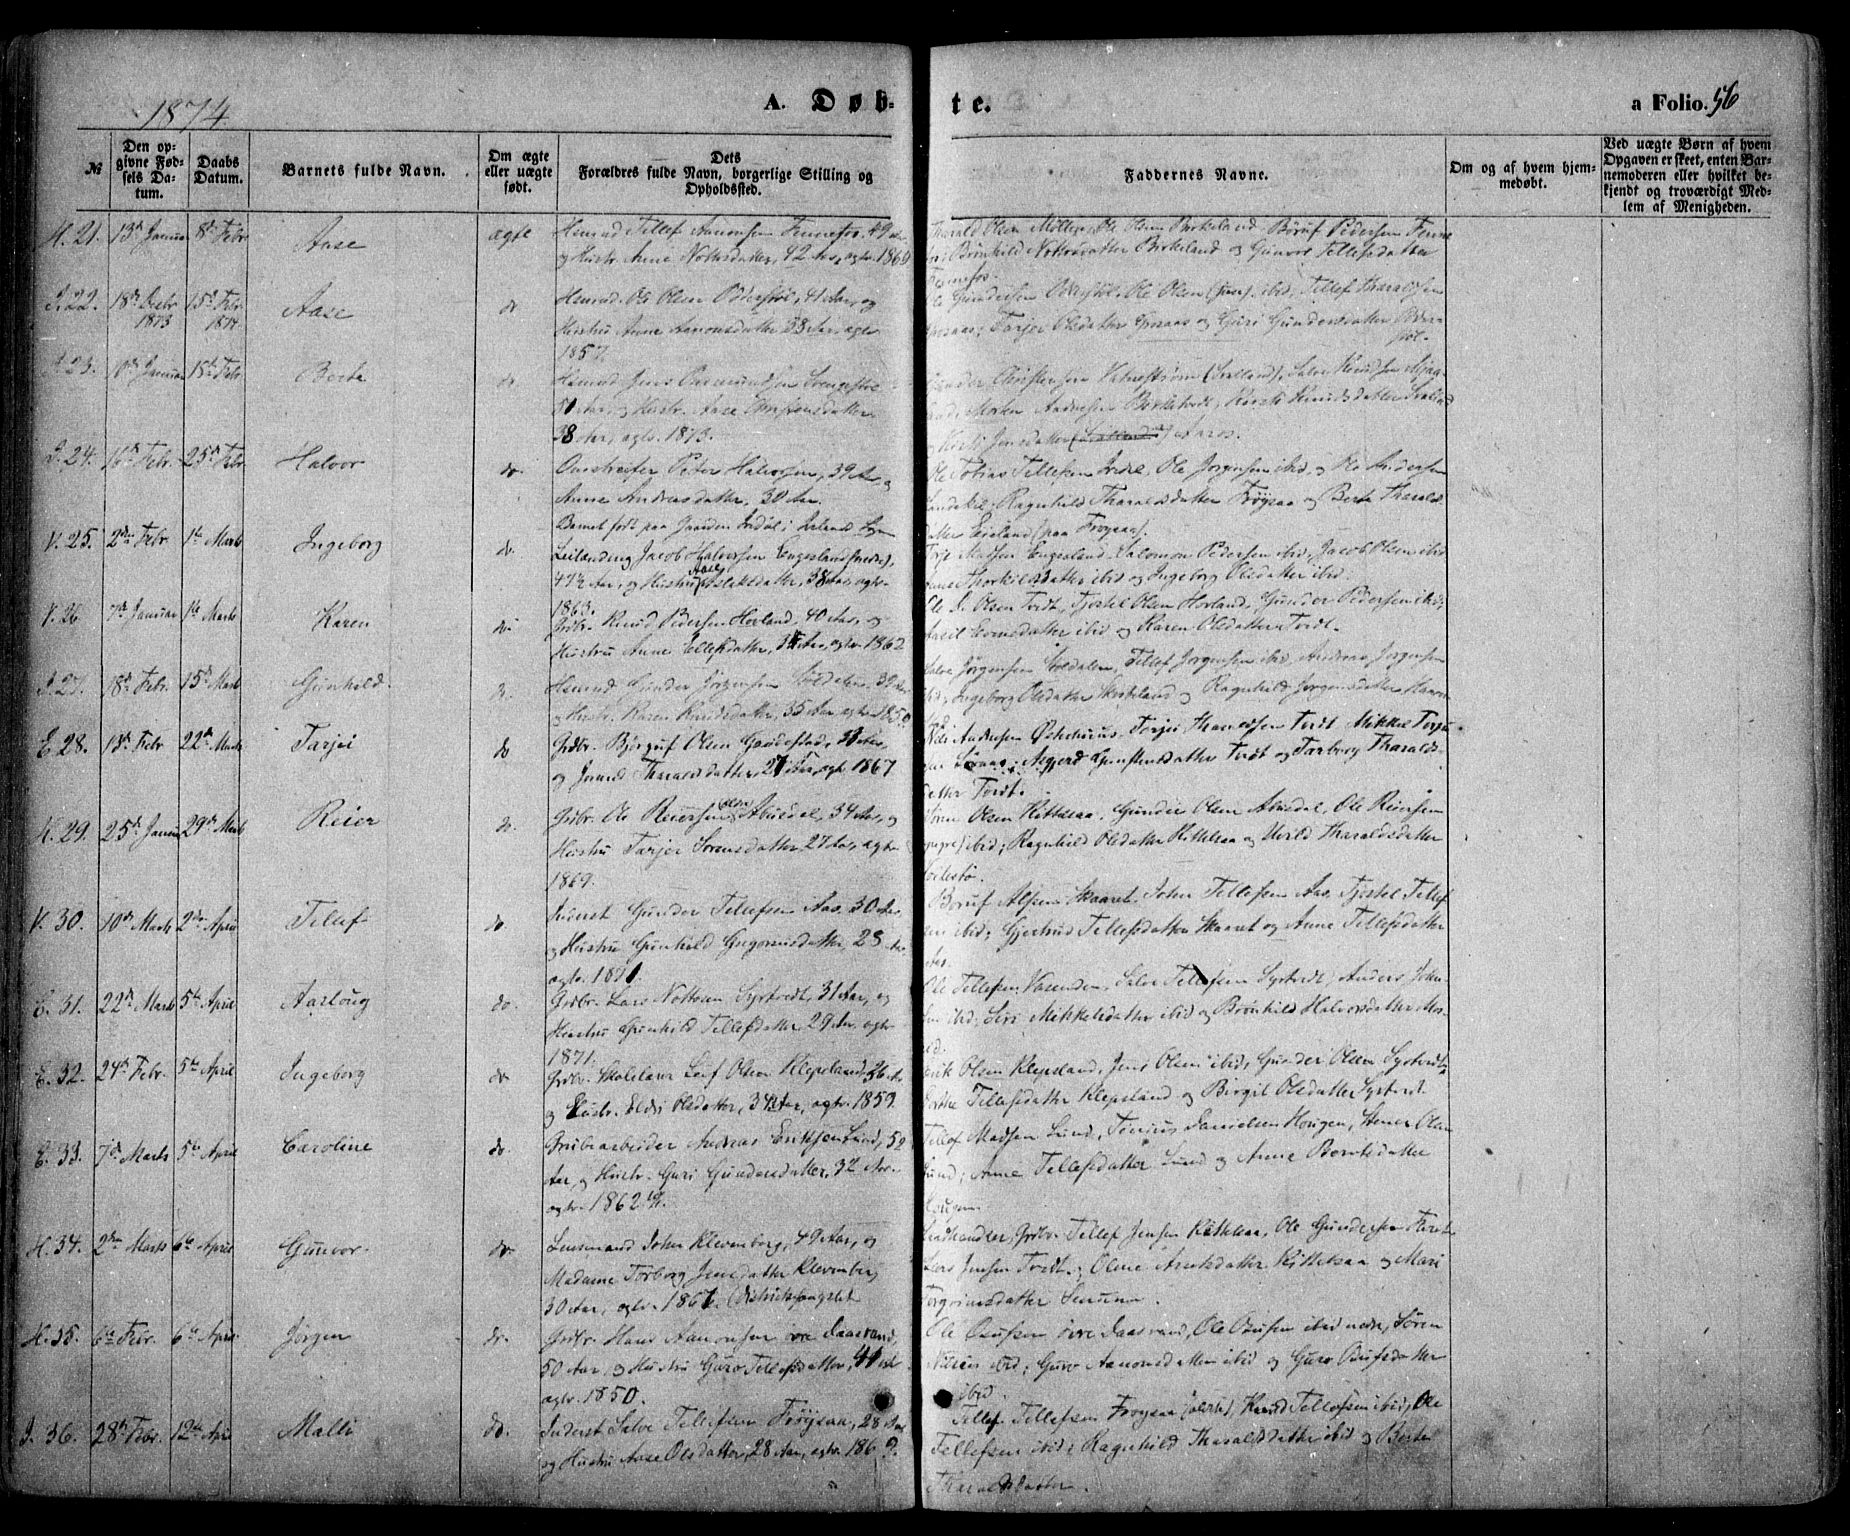 1874.
A. Døb-
te.
a Folio. 56
№
Den op-
givne Fød-
sels Da-
tum.
Daabs
Datum.
Barnets fulde Navn.
Om ægte
eller uægte
født.
Dets
Forældres fulde Navn, borgerlige Stilling og
Opholdssted.
Faddernes Navne.
Om og af hvem hjem-
medøbt.
Ved uægte Børn af hvem
Opgaven er skeet, enten Bar-
nemoderen eller hvilket be-
kjendt og troværdigt Med-
lem af Menigheden.
H. 21. 13de Januar 8de Febr Aase ægte
Husmd Tellef Aanonsen Fennefos 49 Aar
og Hustr. Anne Nottosdatter, 42 Aar, agtv. 1860
Tharald Olsen Møller, Ole Olsen Birkeland, Børuf Pedersen Fenne
fos; Brønhild Nottosdatter Birkeland og Gunvor Tellefsdatter
Fennefos.
I. 22. 18de Decbr 1873 15de Febr. 1874 Aase do
Husmd. Ole Olsen Odderstøl, 41 Aar, og
Hustru Anne Aanonsdatter 38 Aar, agtv
1857.
Gundersen Odderstøl, Ole Olsen ibid, Tellef Tharaldsen
Tarjer Olsdatter og Guri Gundersdatter Odder
støl.
I. 23. 10de Januar 15de Febr. Berte do
Husmd Jens
51 Aar, og Hustr. Aase Christensdatter
38 Aar, agtv. 1873.
Christensen
Morten Andresen Knudsdatter
Jensdatter
I. 24. 16de Febr. 25de Febr Halvor do.
Peter Halvorsen, 39 Aar, og
Anne Andreasdatter, 30 Aar.
Barnet født paa
Ole Tobias Tellefsen Iredal, Ole Jørgensen ibid, og Ole Andersen
Ragnhild Tharaldsdatter Frøysaa og Berte Tharalds
datter Eieland (paa Frøysaa).
V. 25. 2den Febr. 1ste Marts Ingeborg do.
Leilænding Jacob Halvorsen Engesland (nedre),
47½ Aar, og Hustru Aase Aslaksdatter, 38 Aar, agtv.
1863.
Terje Madsen Engesland, Salomon Pedersen ibid, Jacob Olsen ibid
Anne Thorkildsdatter ibid og Ingeborg Olsdatter ibid.
V. 26. 7de Januar 1ste Marts Karen do
Grdbr. Knud Pedersen Horland, 40 Aar, og
Hustru Anne Tellefsdatter, 34 Aar, agtv. 1862
Ole S. Olsen Tordt, Tjøstel Olsen Horland, Gunder Pedersen ibid;
Evensdatter ibid og Karen Olsdatter Tordt.
I. 27. 18de Febr. 15de Marts Gunhild do.
Husmd Gunder Jørgensen Soldalen, 39 Aar
og Hustr. Karen Knudsdatter, 35 Aar, agtv. 1850
Salve Jørgensen Soldalen, Tellef Jørgensen ibid, Andreas Jørgensen
ibid; Ingeborg Olsdatter og Ragnhild Jørgensdatter
E. 28. 18de Febr 22den Marts Tarjei do
Grdbr. Bjørguf Olsen Grødestad, 38 Aar,
og Jorand Tharaldsdatter, 27 Aar, agtv 1867
Andresen Terjei Tharaldsen Tordt, Mikkel Terju
sen Aagjerd datter Tordt og Tarborg Tharalds
datter Tordt.
H. 29. 25de Januar 29de Marts Reier do.
Grdbr. Ole Reiersen Olsen Abusdal, 34 Aar, og
Hustru Tarjer Sørensdatter, 27 Aar, agtv.
1869.
Søren Olsen Kittelsaa, Gunder Olsen Abusdal, Ole Reiersen
(yngre) ibid; Ragnhild Olsdatter Kittelsaa og Tharaldsdatter
V. 30. 10de Marts 2den April Tellef do.
Inderst Gunder Tellefsen Aas, 30 Aar,
og Hustru Gunhild Gregoriusdatter, 28 Aar
agtv. 1871.
Børuf Alfsen Skaaret, John Tellefsen Aas, Tjøstel Tellef
sen ibid; Gjertrud Tellefsdatter Skaaret og Anne Tellefsdatter
Aas.
E. 31. 22de Marts 5te April Aaslaug do.
Grdbr. Lars Nottosen Systvedt, 31 Aar, og
Hustru Gunhild Tellefsdatter, 29 Aar, agtv.
1871.
Ole Tellefsen Vasenden, Salve Tellefsen Systvedt, Anders John
sen ibid; Siri Mikkelsdatter ibid og Brønhild Halvorsdatter
E. 32. 24de Febr. 5te April Ingeborg do
Grdbr. Skolelærer Leif Olsen Klepsland, 36 Aar
og Hustr. Eldri Olsdatter, 34 Aar, agtv. 1859.
Olsen Klepsland, Jens Olsen ibid, Gunder Olsen Systvedt;
Tellefsdatter Klepsland og Birgit Olsdatter Systvedt
E. 33. 7de Marts 5te April Caroline do.
Grubearbeider Andreas Eriksen Lund, 52
Aar, og Hustr. Guri Gundersdatter, 32 Aar.
agtv. 1862
Tellef Madsen Lund, Tinius Danielsen Hougen, Stener Olsen
Lund; Anne Tellefsdatter Lund og Anne Berntsdatter
Hougen.
H. 34. 2den Marts 6te April Gunvor. do.
Lensmand John Klevenberg, 49 Aar, og
Madame Torborg Jensdatter Klevenberg
30 Aar, agtv. 1867.
Landhandler, Grdbr. Tellef Jensen Kittelsaa, Ole Gundersen
Lars Jensen Tordt; Olene Arentsdatter Kittelsaa og Mari
Torgrimsdatter
H. 35. 6te Febr. 6te April Jørgen do.
Grdbr. Hans Aanonsen øvre Daasvand,
50 Aar, og Hustru Guro Tellefsdatter, 41
agtv. 1850.
Ole Osufsen øvre Daasvand, Ole Osufsen ibid nedre, Søren
Nilsen ibid; Guro Aanonsdatter ibid og Guro Osufsdatter
ibid.
I. 36. 28de Febr. 12te April Malli do.
Inderst Salve Tellefsen Frøysaa, 28 Aar
og Hustru Aase Olsdatter, 28 Aar, agtv. 1869.
Tellef Tellefsen Frøysaa (ældre), Knud Tellefsen ibid, Ole
Tellefsen ibid; Ragnhild Tharaldsdatter ibid og Berte
Tharaldsdatter.